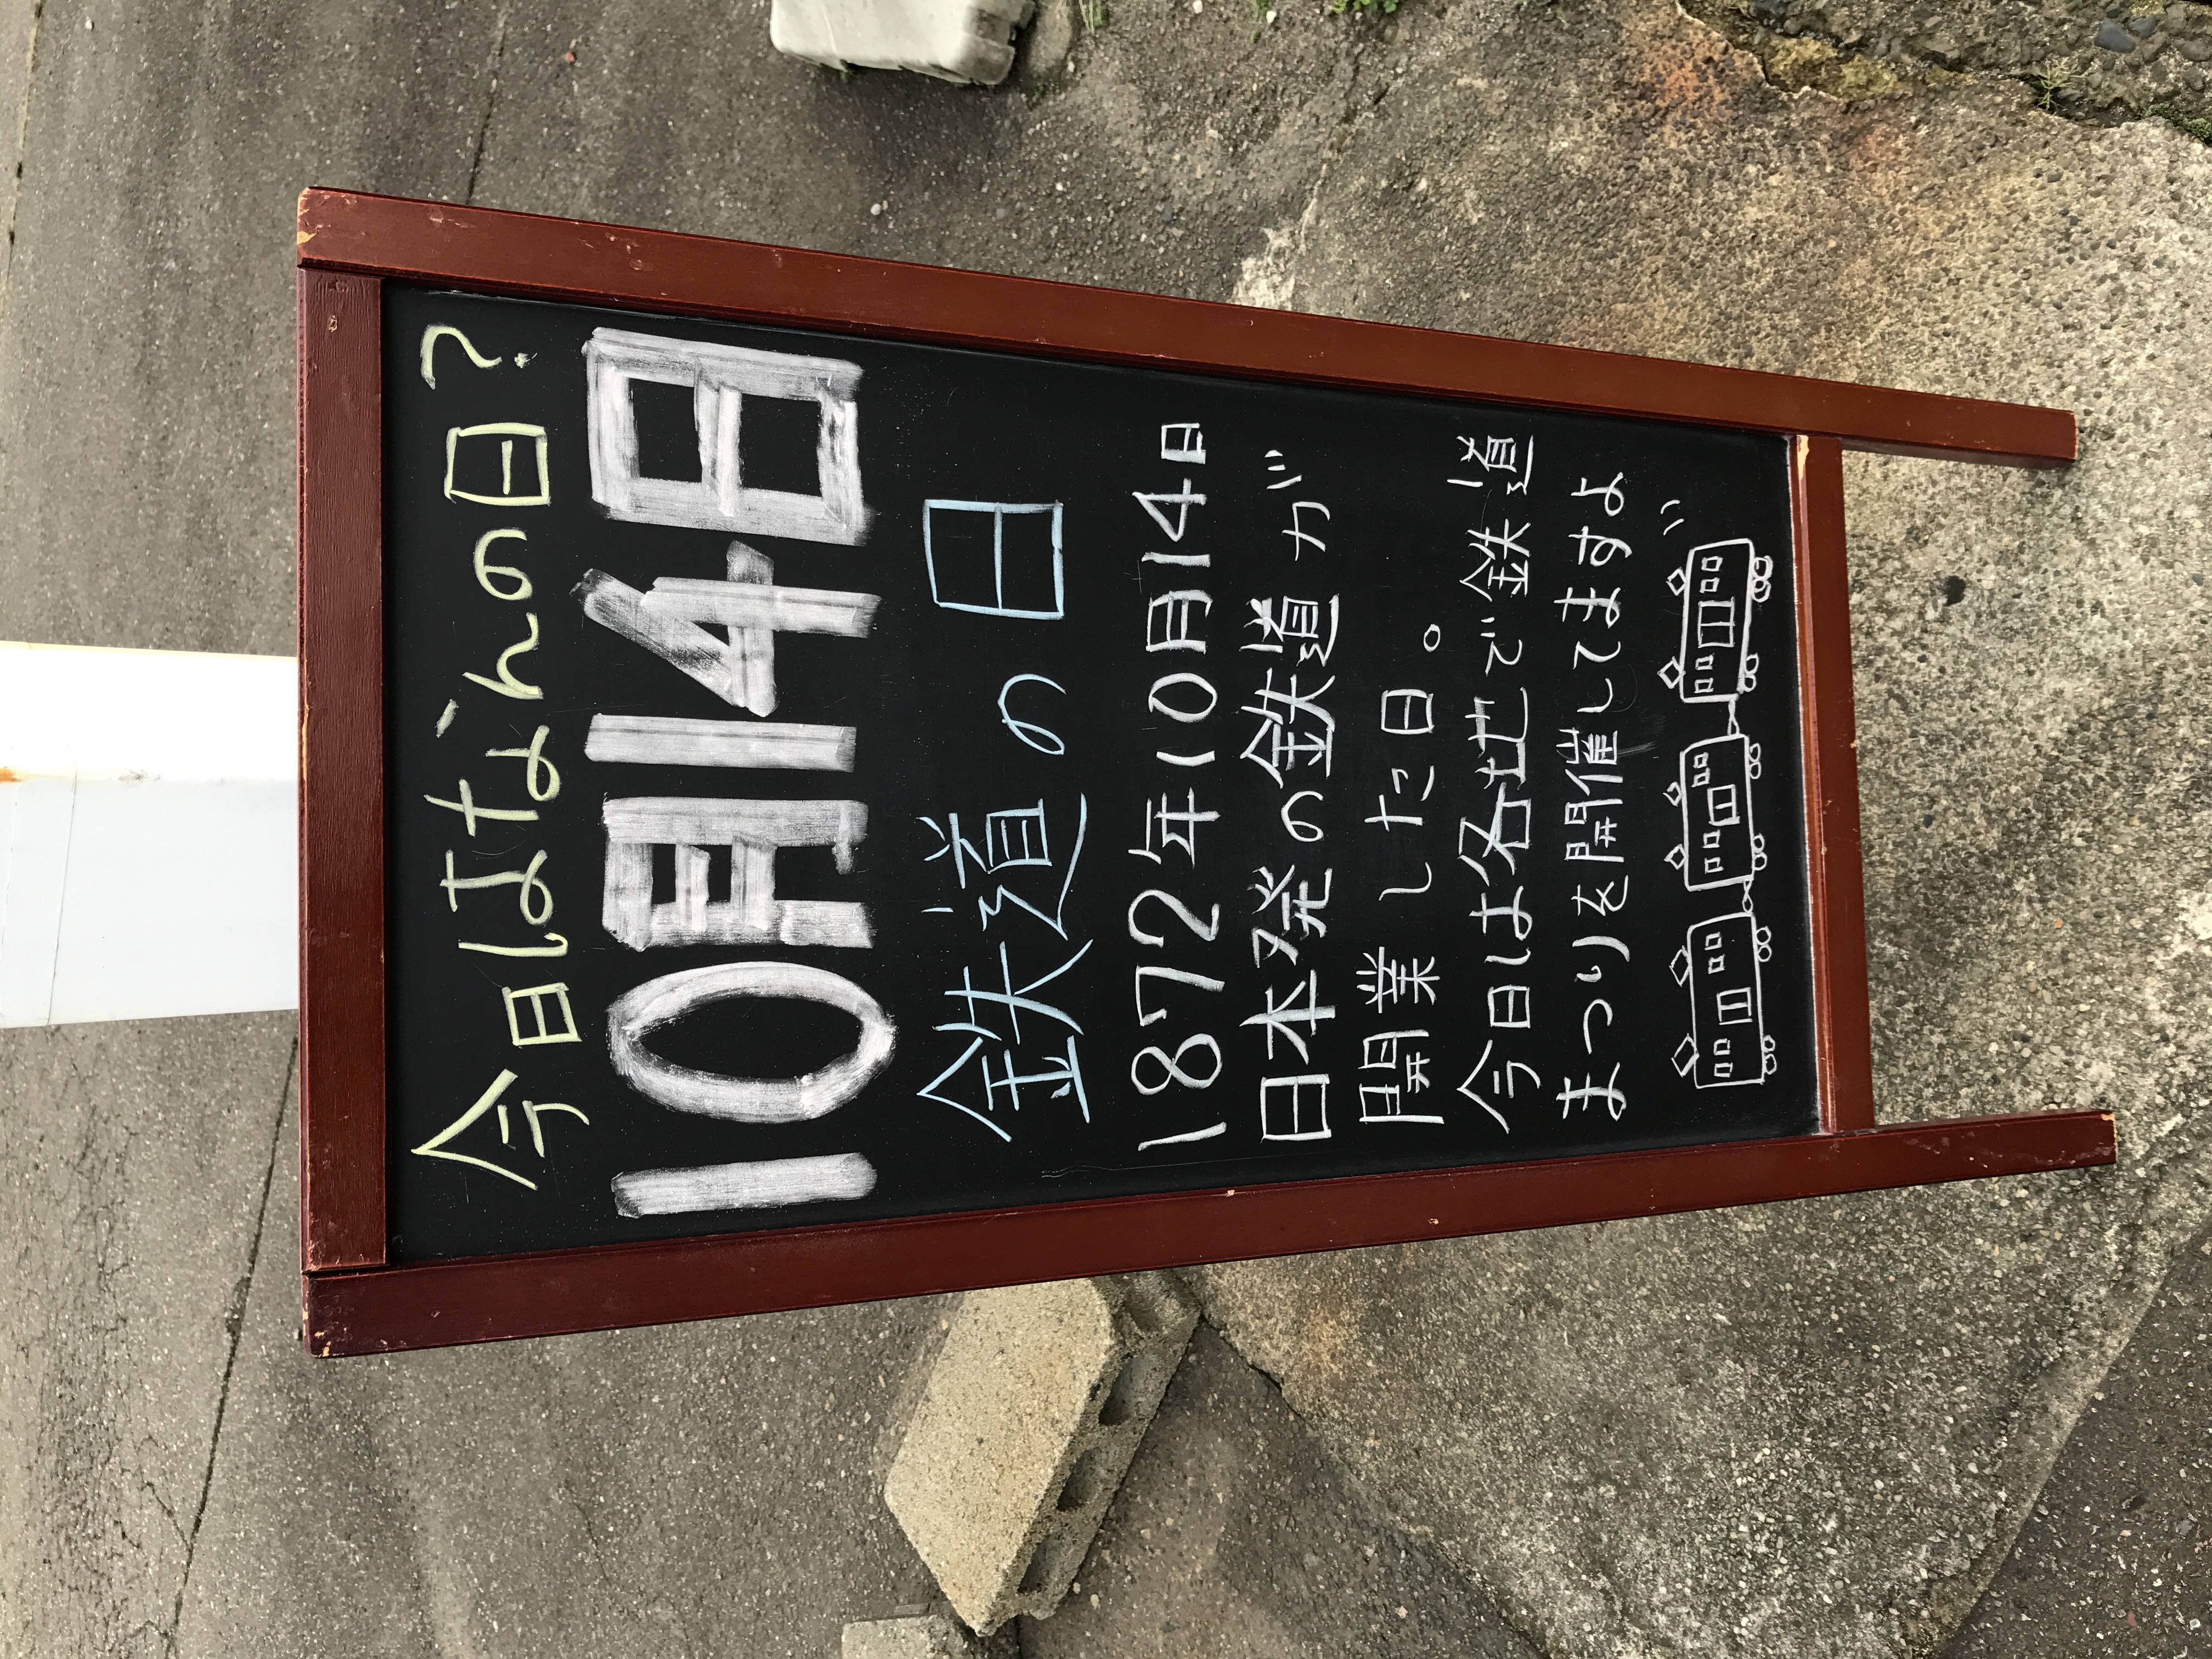 今日はなんの日?
10月14日
鉄道の日
1872年10月14日
日本発の鉄道が
開業した日。
今日は各地で鉄道
まつりを開催してますよ